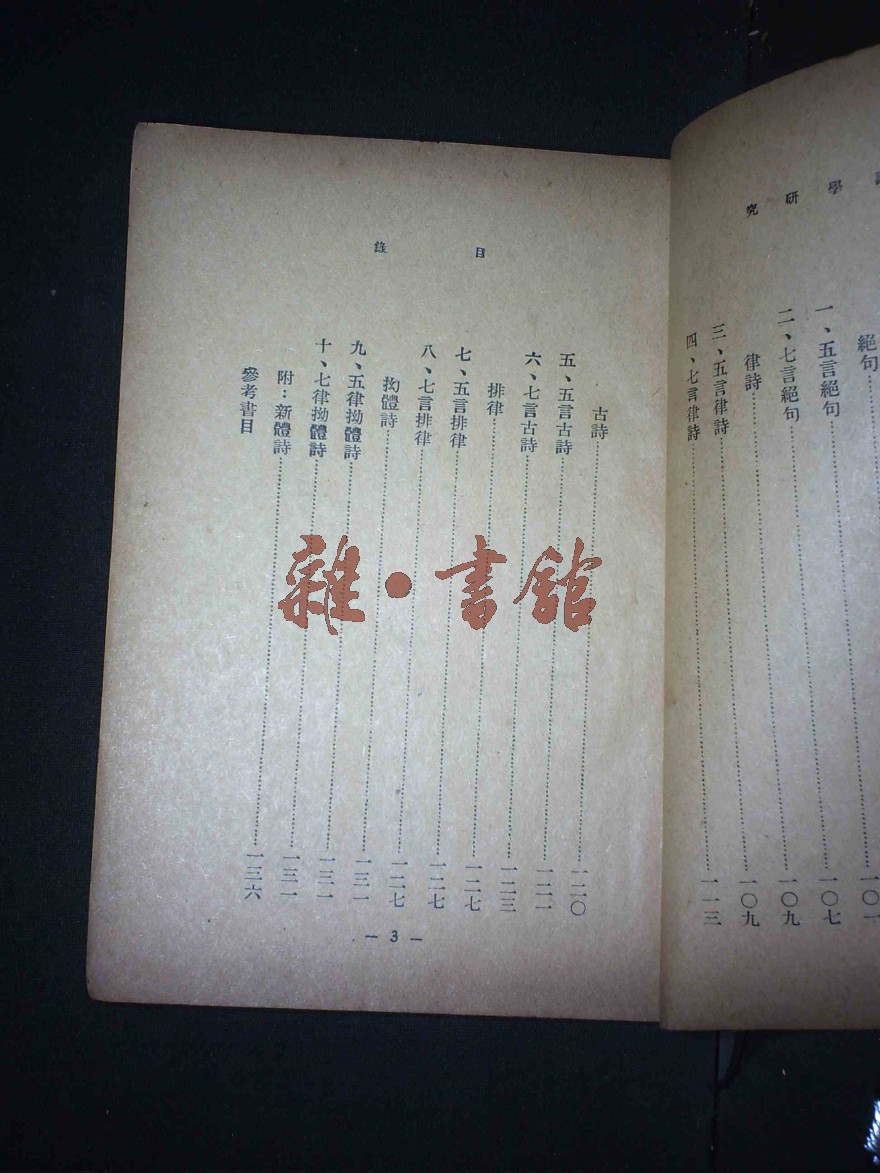 學研究
絕句
一、五言絕句 一〇一
二、七言絕句 一〇七
律詩 一〇九
三、五言律詩 一〇九
四、七言律詩 一一三
目錄
古詩 一二〇
五、五言古詩 一二一
六、七言古詩 一二三
排律 一二七
七、五言排律 一二七
八、七言排律 一二七
拗體詩 一三一
九、五律拗體詩 一三一
十、七律拗體詩 一三一
附：新體詩 一三六
參考書目
— 3 —
雜·書館